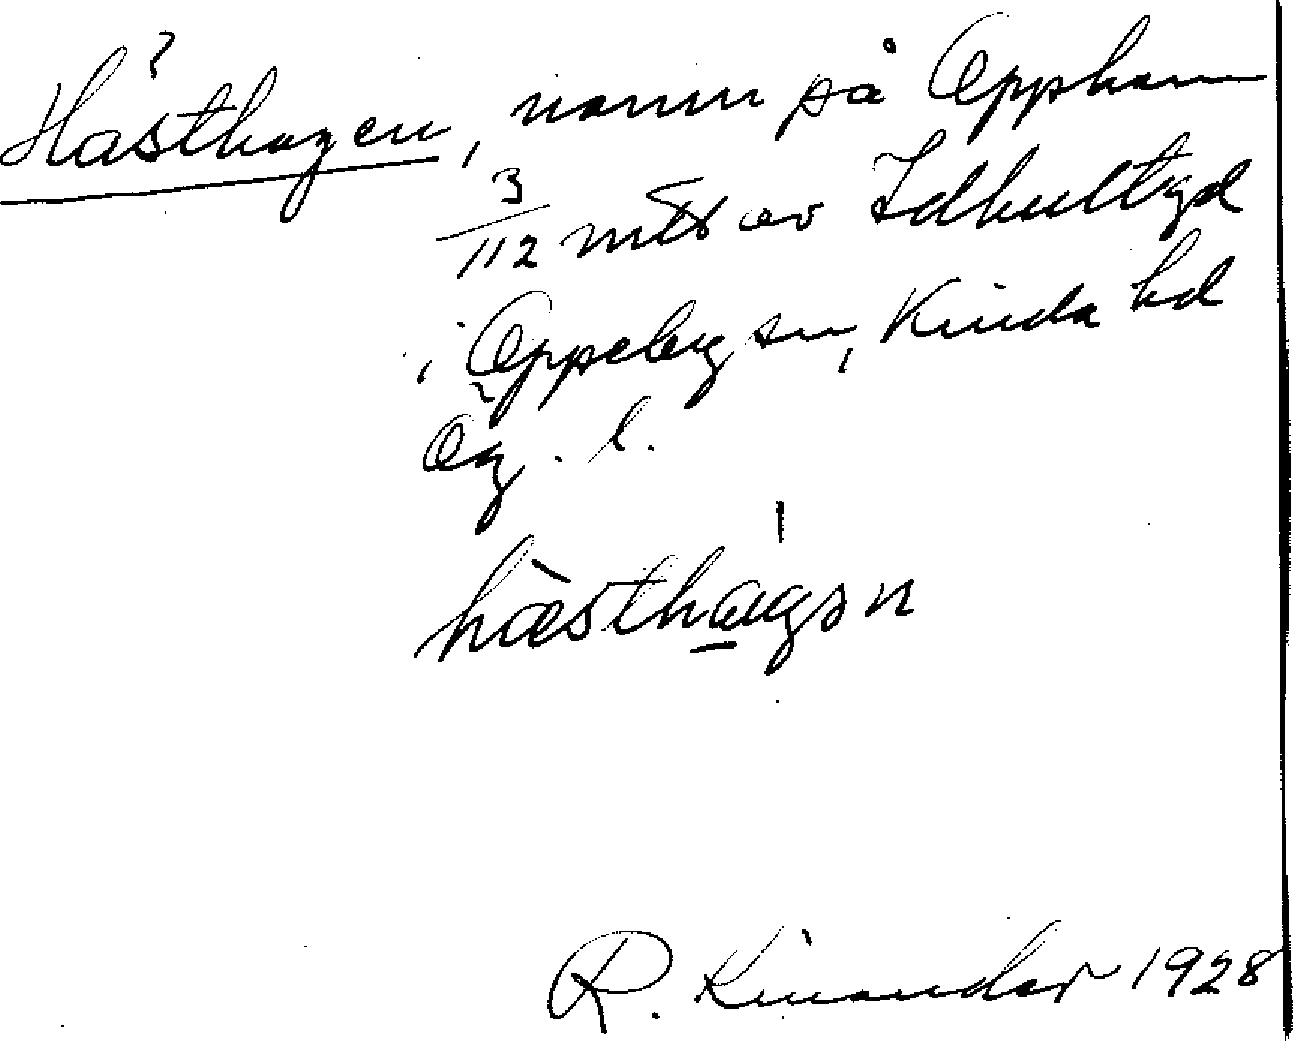 Hästhagen, namn på Opphem
3/112 mtl av Idhult gd
i Oppeby sn, Kinda hd
Ög. l.
hæsthagən
R. Kinander 1928